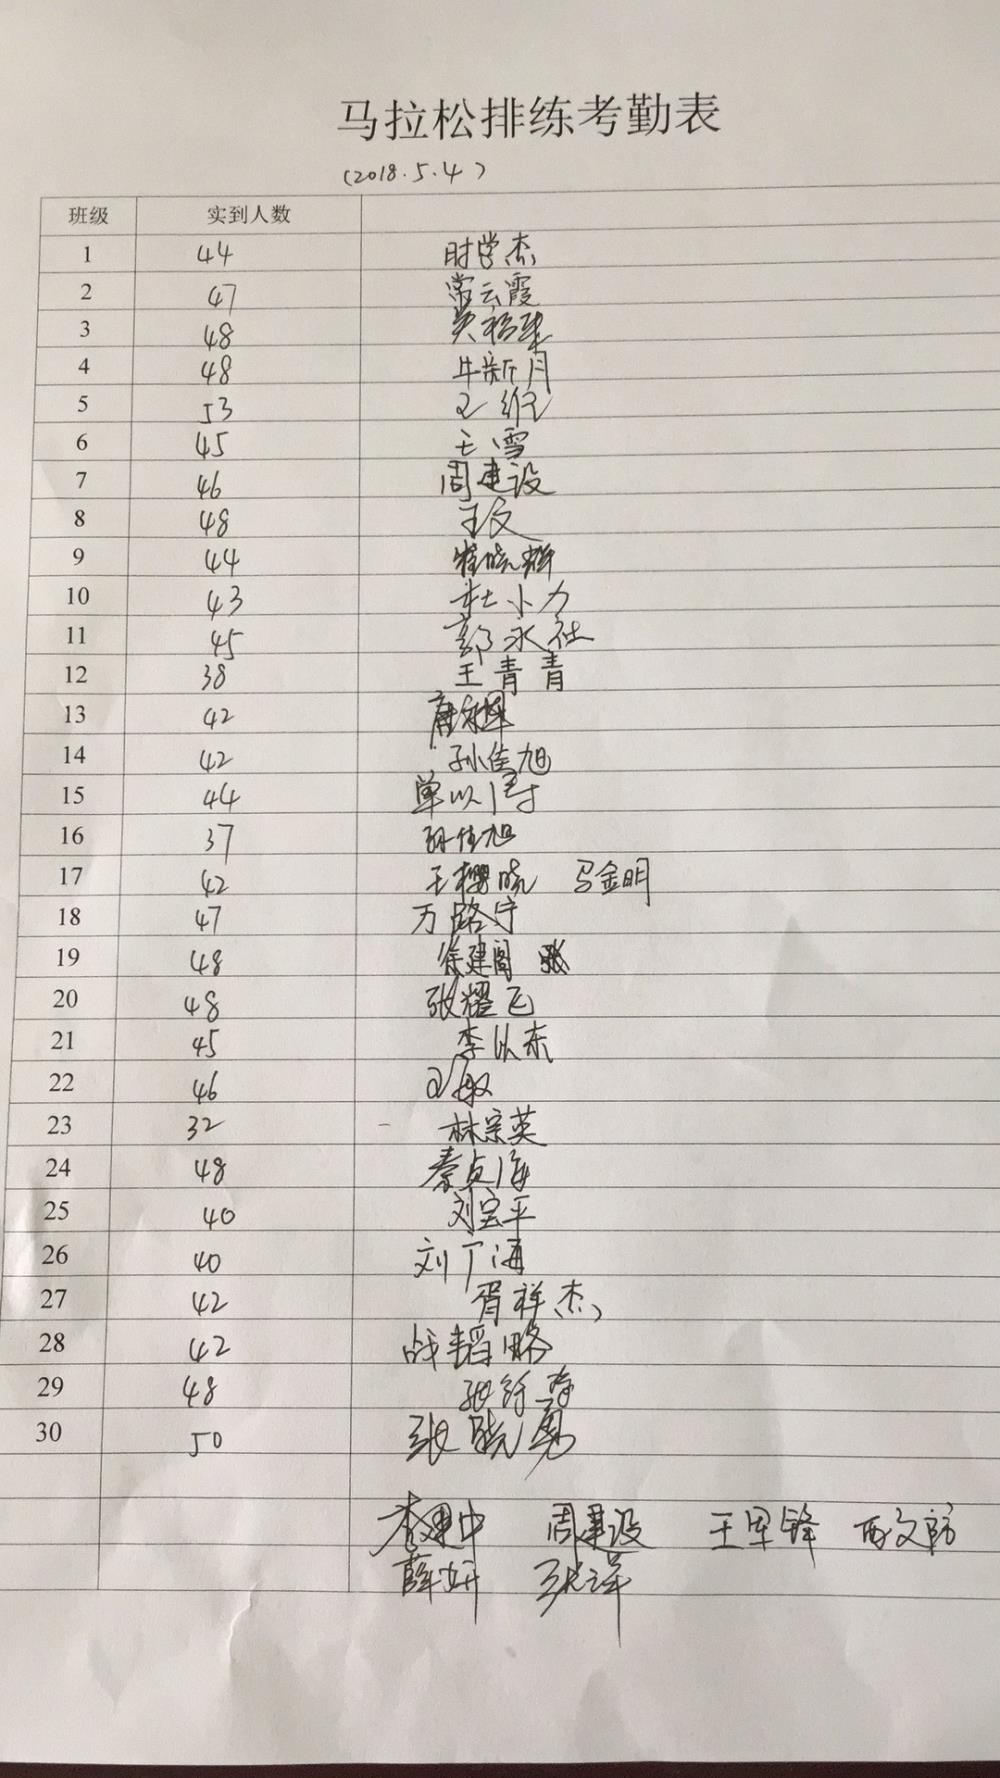 马拉松排练考勤表
(2018.5.4)
班级 实到人数
1 44 时学杰
2 47 常云霞
3 48
4 48 牛新月
5 53 王
6 45 王雪
7 46 周建设
8 48 王文
9 44
10 43 杜小力
11 45 郭永社
12 38 王青青
13 42
14 42 孙佳旭
15 44 单以涛
16 37 孙佳旭
17 42 王樱晓 马金明
18 47 万路宁
19 48 徐建阁
20 48 张耀飞
21 45 李以东
22 46 王敏
23 32 林宗英
24 48 秦贞海
25 40 刘宝平
26 40 刘广海
27 42 胥祥杰
28 42 战韬略
29 48
30 50 张晓勇
李建中 周建设 王军锋
薛妍 张萍